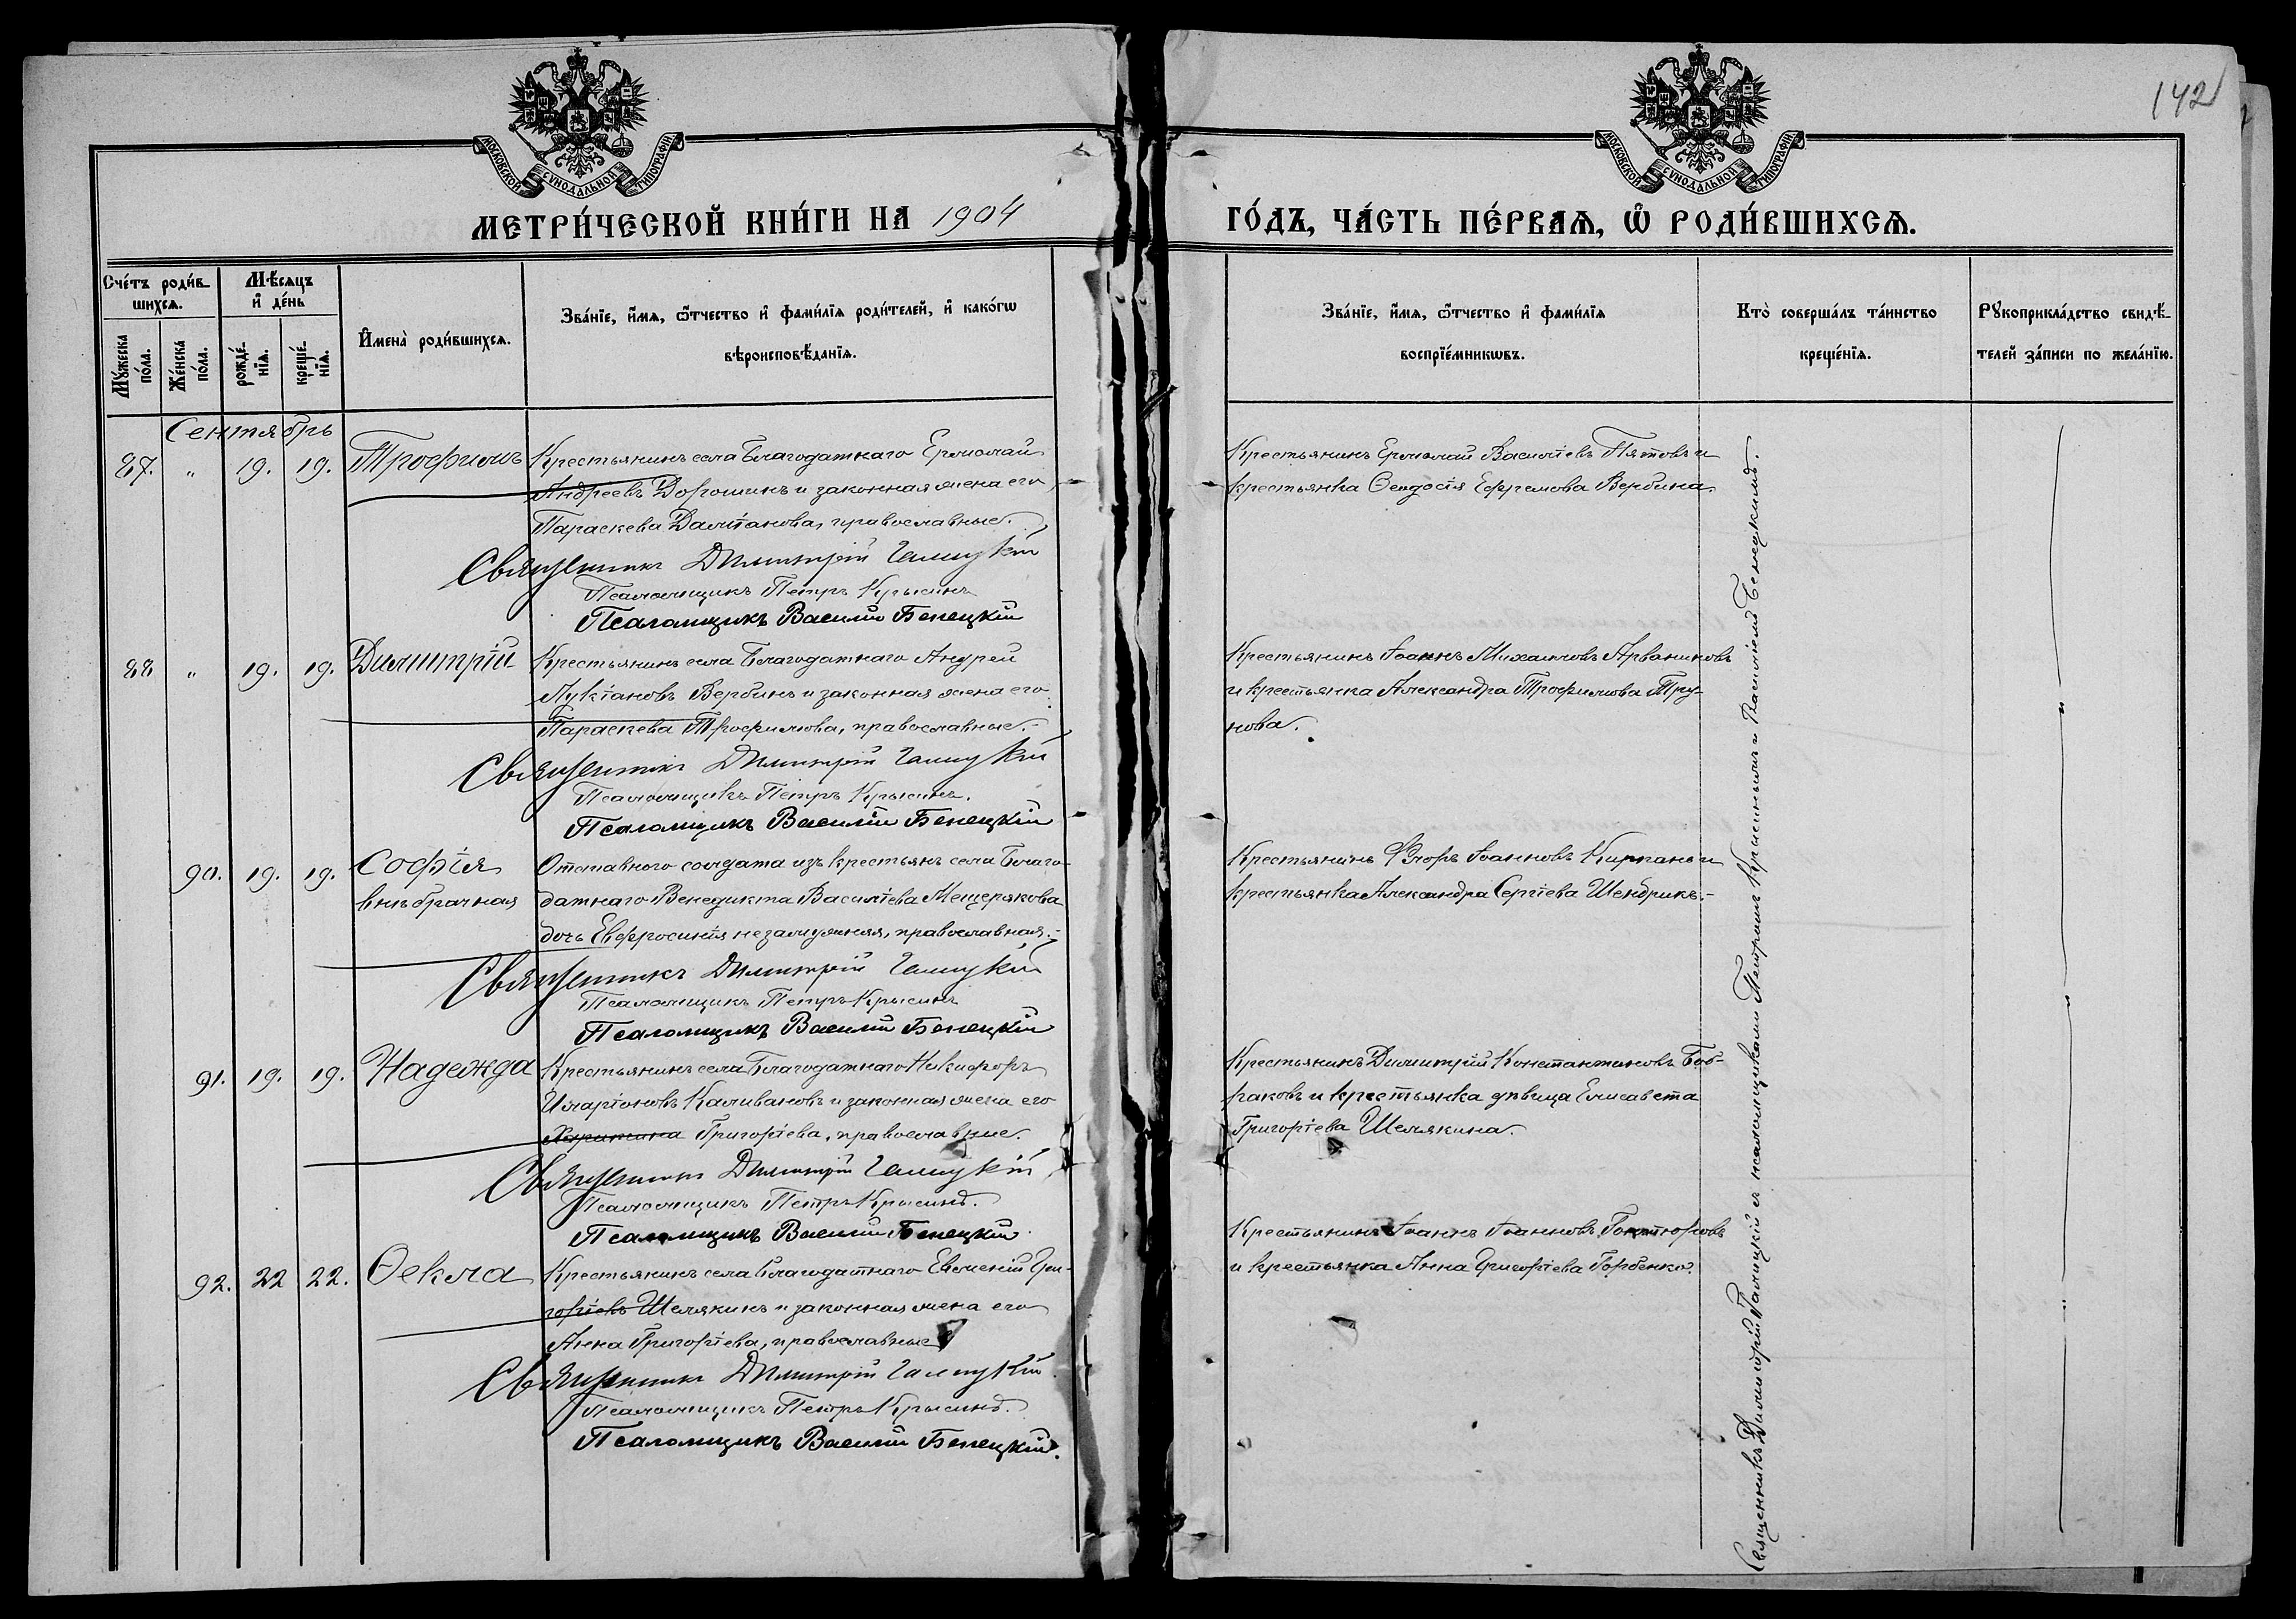 142
МОСКОВСКОЙ СѴНОДАЛЬНОЙ ТИПОГРАФІИ
МОСКОВСКОЙ СѴНОДАЛЬНОЙ ТИПОГРАФІИ
МЕТРИ́ЧЕСКОЙ КНИ́ГИ НА 1904
ГО́ДЪ, ЧА́СТЬ ПЕ́РВАѦ, Ѡ҆ РОДИ́ВШИХСѦ.
Сче́тъ роди́в-
шихсѧ.
Мꙋ́жеска по́ла.
Же́нска по́ла.
Мѣ́сѧцъ
и҆ де́нь
рожде́-
нїѧ.
креще́-
нїѧ.
И҆мена̀ роди́вшихсѧ.
Зва́нїе, и҆́мѧ, ѻ҆́тчество и҆ фами́лїѧ роди́телей, и҆ како́гѡ
вѣроисповѣ́данїѧ.
Зва́нїе, и҆́мѧ, ѻ҆́тчество и҆ фами́лїѧ
воспрїе́мникѡвъ.
Кто̀ соверша́лъ та́инство
креще́нїѧ.
Рꙋкоприкла́дство свидѣ́-
телей за́писи по жела́нїю.
Сентябрь
87. " 19. 19. Трофимъ Крестьянинъ села Благодатнаго Ермолай
Андреевъ Дорошинъ и законная жена его
Параскева Даміанова, православные.
Священникъ Димитрій Галицкій
Псаломщикъ Петръ Крысинъ
Псаломщикъ Василій Бенецкій
Крестьянинъ Ермолай Василіевъ Пятовъ и
крестьянка Ѳеодосія Ефремова Вербина.
88 " 19. 19. Димитрій Крестьянинъ села Благодатнаго Андрей
Лукіановъ Вербинъ и законная жена его
Параскева Трофимова, православные.
Священникъ Димитрій Галицкій
Псаломщикъ Петръ Крысинъ.
Псаломщикъ Василій Бенецкій
Крестьянинъ Іоаннъ Михаиловъ Арваниковъ
и крестьянка Александра Трофимова Тру-
нова.
90. 19. 19. Софія Отставного солдата изъ крестьянъ села Благо-
внѣбрачная датнаго Венедикта Василіева Мещерякова
дочь Евфросинія незамужняя, православная.
Священникъ Димитрій Галицкій
Псаломщикъ Петръ Крысинъ
Псаломщикъ Василій Бенецкій
Крестьянинъ Іоанновъ и
крестьянка Александра Сергіева Шендрикъ.
91. 19. 19. Надежда Крестьянинъ села Благодатнаго Никифоръ
Иларіоновъ Каливановъ и законная жена его
Григоріева, православные.
Священникъ Димитрій Галицкій
Псаломщикъ Петръ Крысинъ.
Псаломщикъ Василій Бенецкій.
Крестьянинъ Димитрій Константиновъ Боб-
раковъ и крестьянка дѣвица Елисавета
Григоріева Шелякина.
92. 22 22. Ѳекла Крестьянинъ села Благодатнаго Евменій Гри-
горіевъ Шелякинъ и законная жена его
Анна Григоріева, православные
Священникъ Димитрій Галицкій
Псаломщикъ Петръ Крысинъ.
Псаломщикъ Василій Бенецкій.
Крестьянинъ Іоаннъ Іоанновъ
и крестьянка Анна Григоріева Горбенко.
Священникъ Димитрій Галицкій съ псаломщиками Петромъ Крысинымъ и Василіемъ Бенецкимъ.